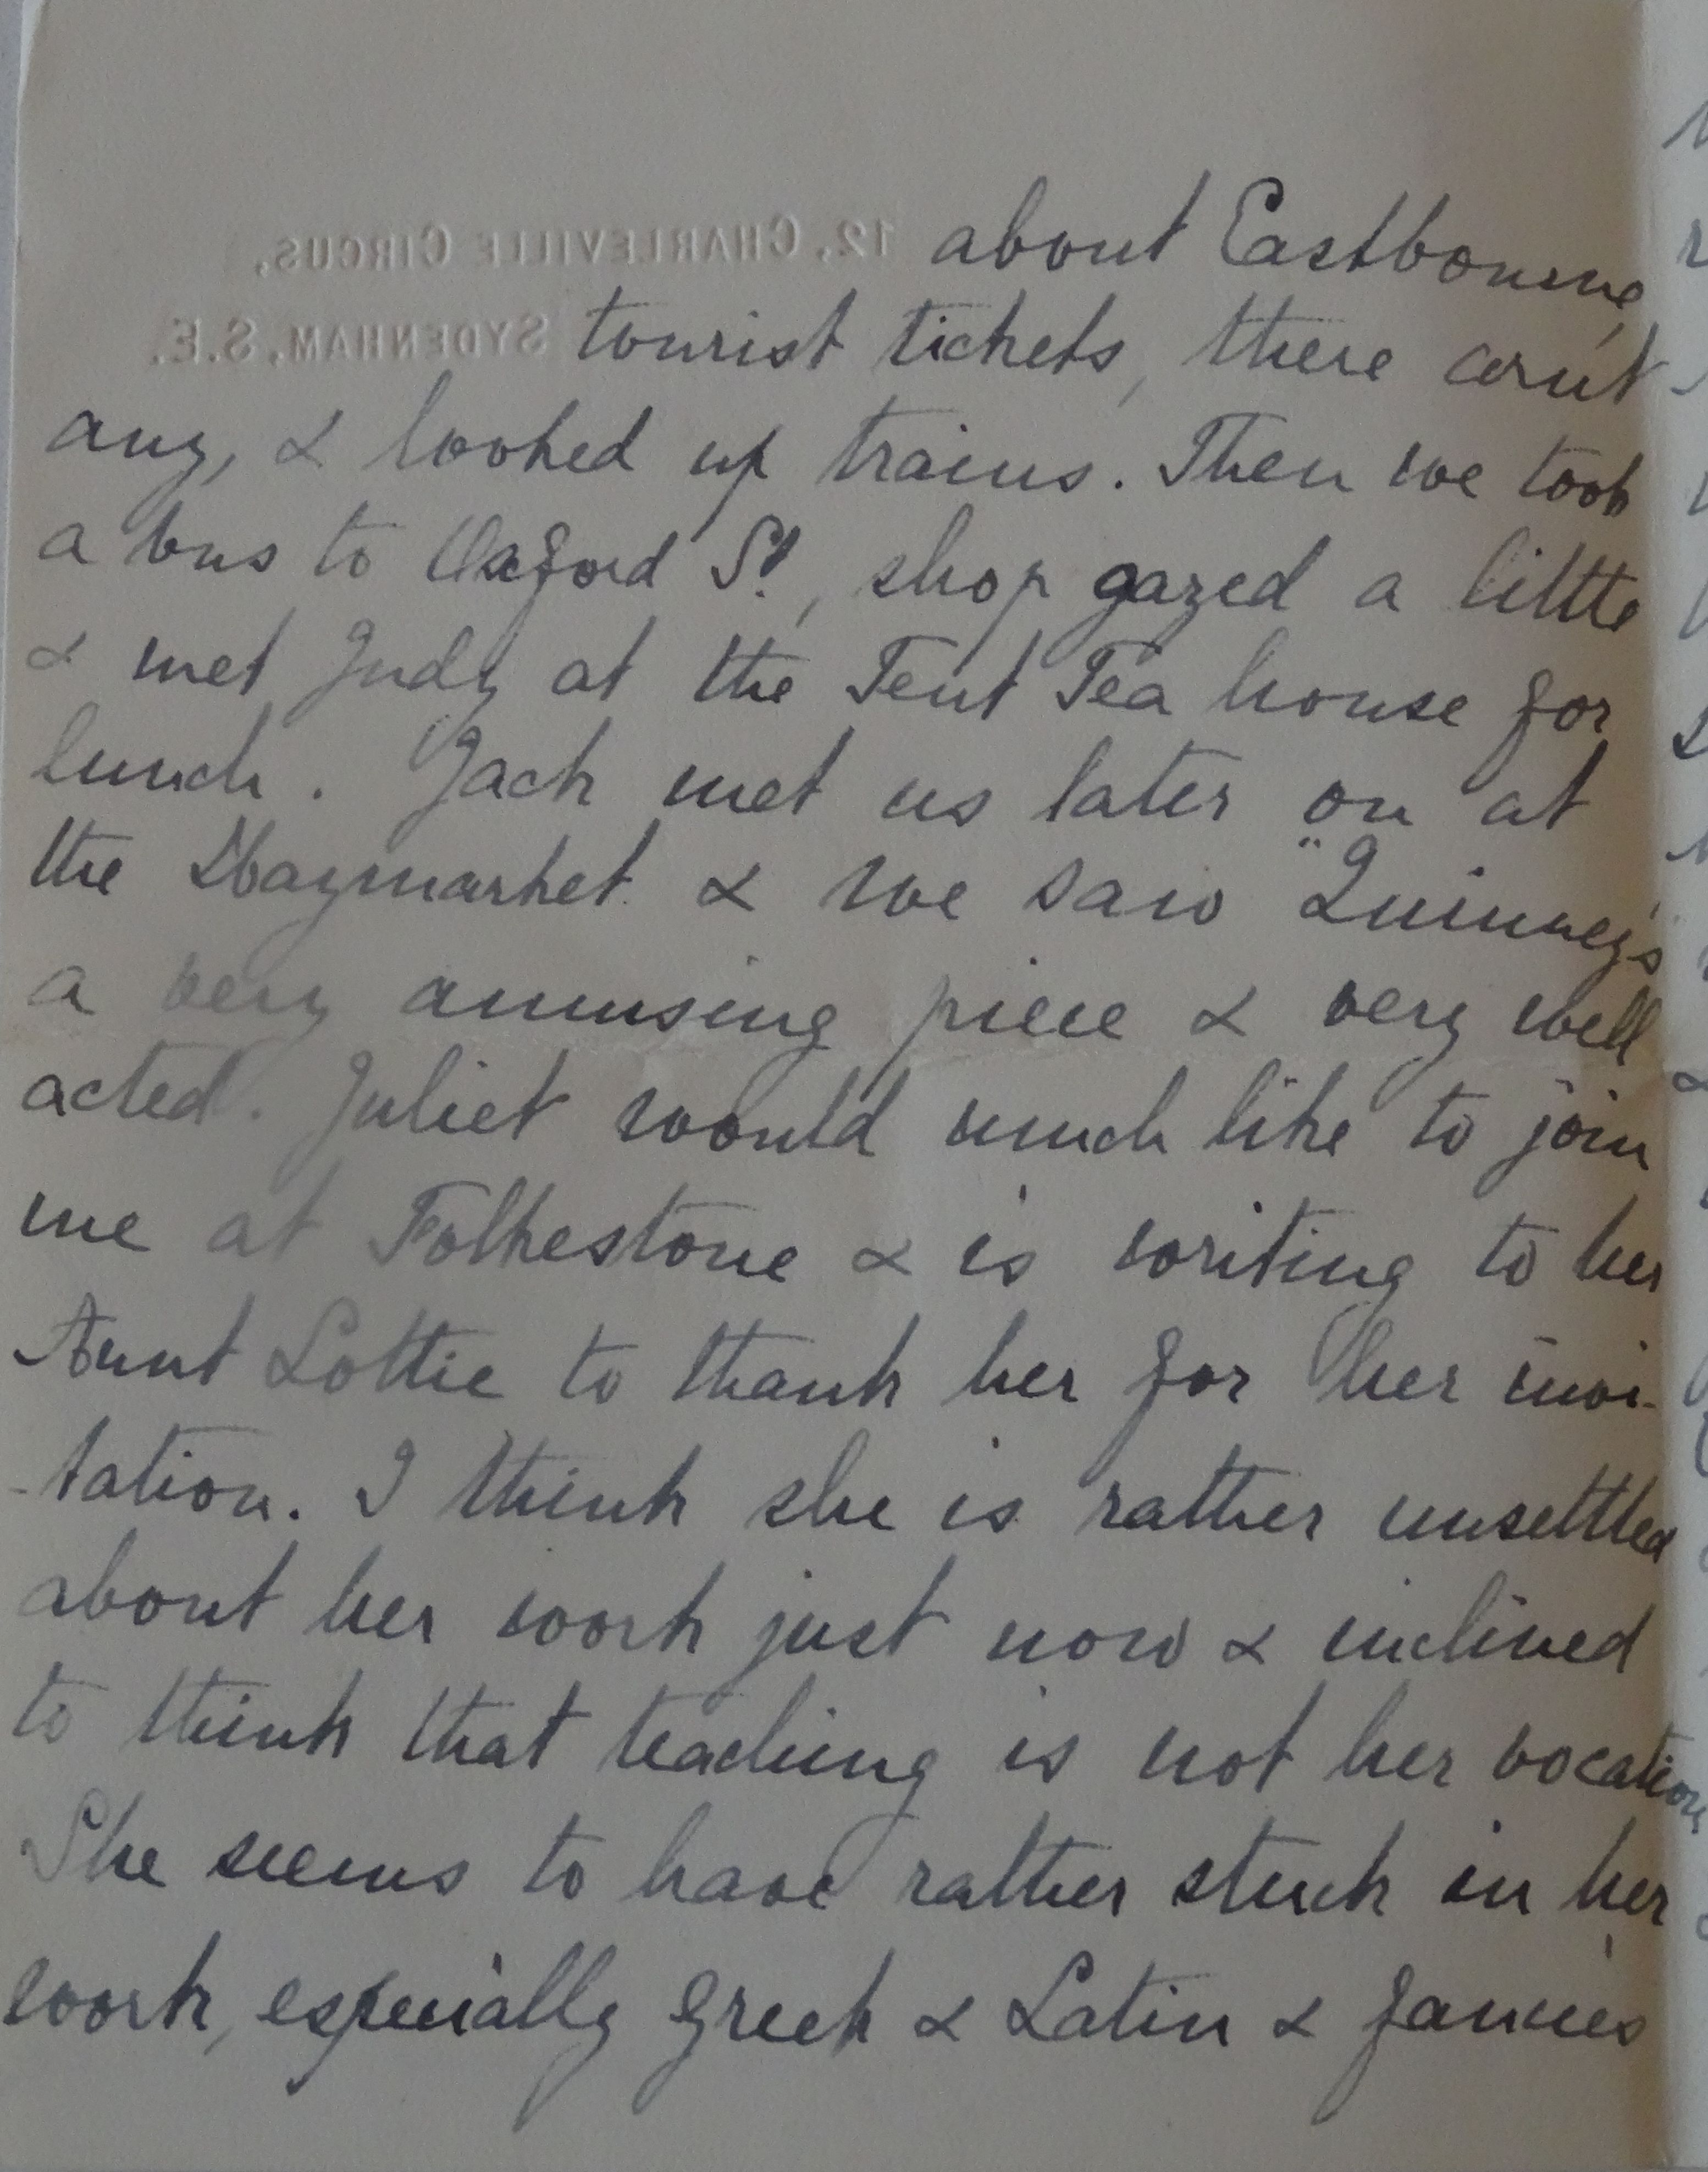 12, CHARLEVILLE CIRCUS,
SYDENHAM, S.E.
about Eastbourne,
tourist tickets, there arn't
any, & looked up trains. Then we took
a bus to Oxford St., shop gazed a little
& met Judy at the Tent Tea house for
lunch. Jack met us later on at
the Haymarket & we saw "Quinney's"
a very amusing piece & very well
acted. Juliet would much like to join
me at Folkestone & is writing to her
Aunt Lottie to thank her for her invi-
-tation. I think she is rather unsettled
about her work just now & inclined
to think that teaching is not her vocation
She seems to have rather stuck in her
work, especially Greek & Latin & fancies